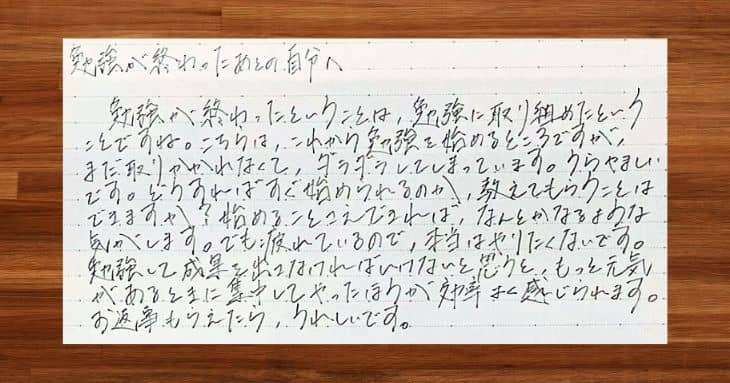 勉強が終わったあとの自分へ
勉強が終わったということは，勉強に取り組めたという
ことですね。こちらは，これから勉強を始めるところですが，
まだ取りかかれなくて，ダラダラしてしまっています。うらやましい
です。どうすればすぐ始められるのか，教えてもらうことは
できますか？始めることさえできれば，なんとかなるような
気がします。でも疲れているので，本当はやりたくないです。
勉強して成果を出さなければいけないと思うと，もっと元気
があるときに集中してやったほうが効率よく感じられます。
お返事もらえたら，うれしいです。